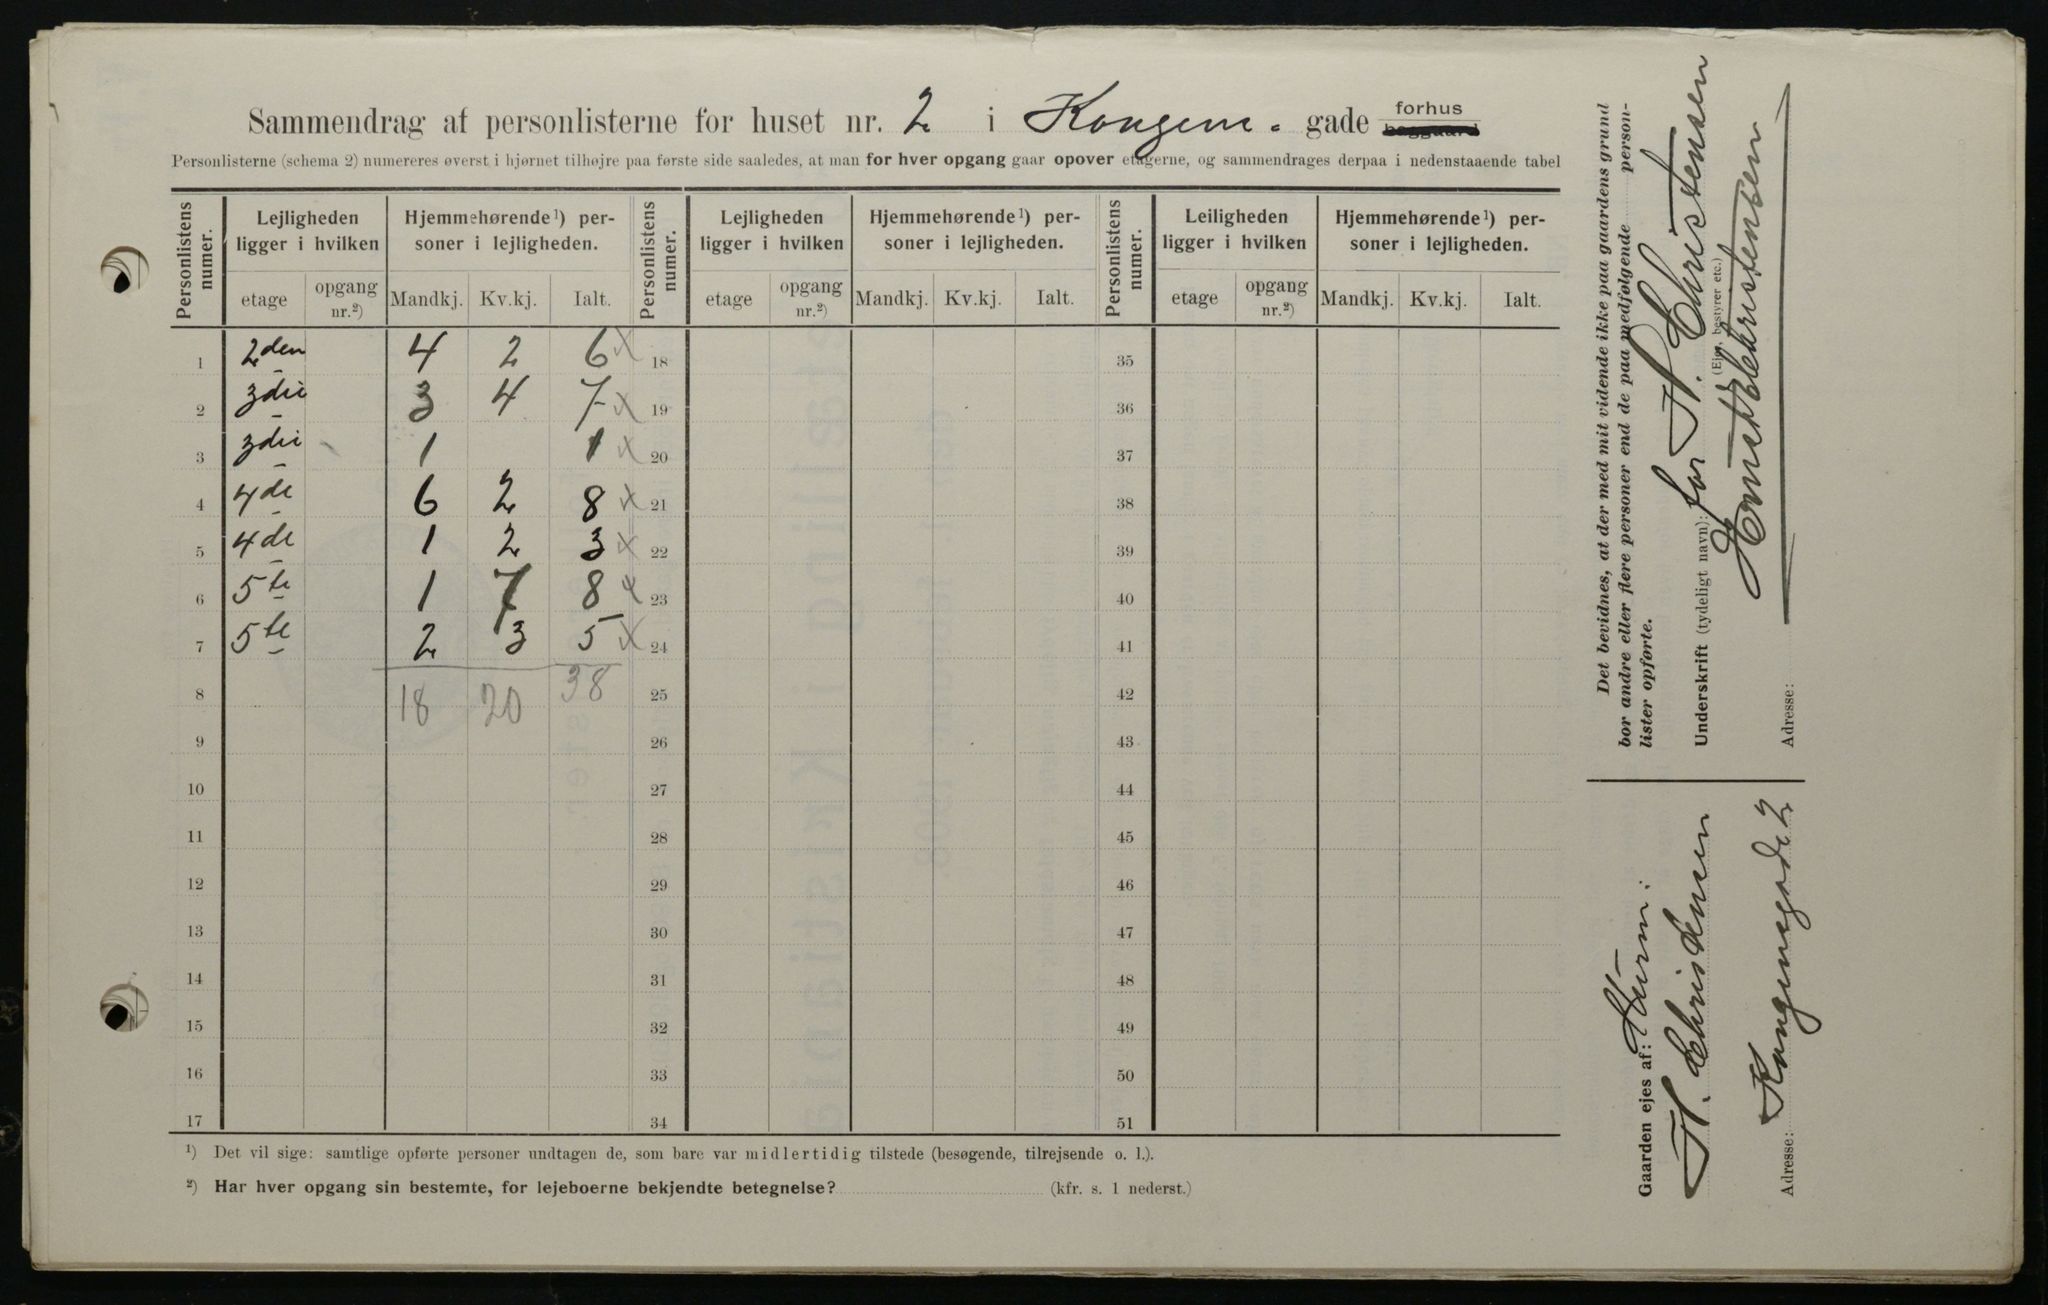 Sammendrag af personlisterne for huset nr. 2 i Kongens gade forhus
Personlisterne (schema 2) numereres øverst i hjørnet tilhøjre paa første side saaledes, at man for hver opgang gaar opover etagerne, og sammendrages derpaa i nedenstaaende tabel
Personlistens numer. Lejligheden ligger i hvilken Hjemmehørende ¹) personer i lejligheden. Personlistens numer. Lejligheden ligger i hvilken Hjemmehørende ¹) personer i lejligheden. Personlistens numer. Leiligheden ligger i hvilken Hjemmehørende ¹) personer i lejligheden.
etage opgang nr.²) Mandkj. Kv.kj. Ialt. etage opgang nr.²) Mandkj. Kv.kj. Ialt. etage opgang nr.²) Mandkj. Kv.kj. Ialt.
1 2den 4 2 6 x 18 35
2 3die 3 4 7 x 19 36
3 3die 1 1 x 20 37
4 4de 6 2 8 x 21 38
5 4de 1 2 3 x 22 39
6 5te 1 7 8 x 23 40
7 5te 2 3 5 x 24 41
8 18 20 38 25 42
9 26 43
10 27 44
11 28 45
12 29 46
13 30 47
14 31 48
15 32 49
16 33 50
17 34 51
¹) Det vil sige: samtlige opførte personer undtagen de, som bare var midlertidig tilstede (besøgende, tilrejsende o. l.).
²) Har hver opgang sin bestemte, for lejeboerne bekjendte betegnelse? (kfr. s. 1 nederst.)
Det bevidnes, at der med mit vidende ikke paa gaardens grund
bor andre eller flere personer end de paa medfølgende personlister opførte.
Underskrift (tydeligt navn): for H. Christensen
(Ejer, bestyrer etc.)
Christensen
Adresse:
Gaarden ejes af: Firm:
H. Christensen
Adresse: Kongensgade 2